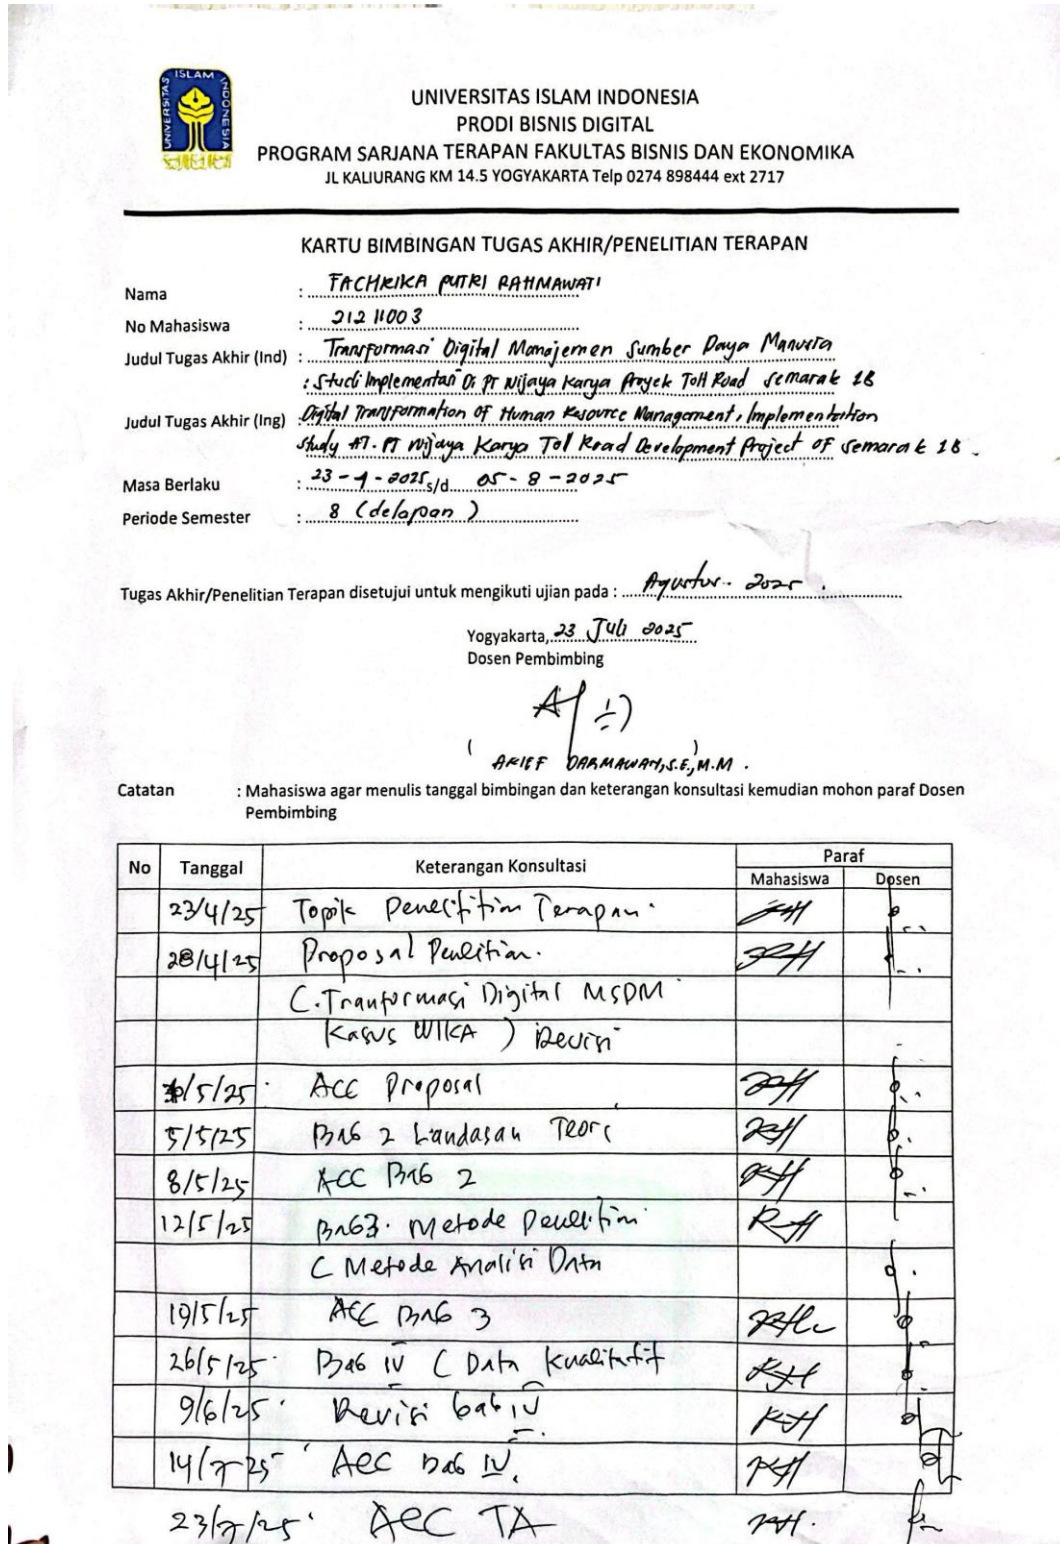 UNIVERSITAS ISLAM INDONESIA
UNIVERSITAS ISLAM INDONESIA
PRODI BISNIS DIGITAL
PROGRAM SARJANA TERAPAN FAKULTAS BISNIS DAN EKONOMIKA
JL KALIURANG KM 14.5 YOGYAKARTA Telp 0274 898444 ext 2717
KARTU BIMBINGAN TUGAS AKHIR/PENELITIAN TERAPAN
Nama : FACHRIKA PUTRI RAHMAWATI
No Mahasiswa : 21211003
Judul Tugas Akhir (Ind) : Transformasi Digital Manajemen Sumber Daya Manusia
: Studi Implementasi Di PT Wijaya Karya Proyek Toll Road Semarak 1B
Judul Tugas Akhir (Ing) Digital Transformation of Human Resource Management, Implementation
Study AT. PT Wijaya Karya Tol Road Development Project of Semarak 1B.
Masa Berlaku : 23-4-2025 s/d 05-8-2025
Periode Semester : 8 (delapan)
Tugas Akhir/Penelitian Terapan disetujui untuk mengikuti ujian pada : Agustus 2025.
Yogyakarta, 23 Juli 2025
Dosen Pembimbing
( ARIEF DARMAWAN, S.E., M.M. )
Catatan : Mahasiswa agar menulis tanggal bimbingan dan keterangan konsultasi kemudian mohon paraf Dosen
Pembimbing
No Tanggal Keterangan Konsultasi Paraf
Mahasiswa Dosen
23/4/25 Topik Penelitian Terapan.
28/4/25 Proposal Penelitian.
(Tranformasi Digital MSDM
Kasus WIKA) Revisi
/5/25 ACC Proposal
5/5/25 Bab 2 Landasan Teori
8/5/25 ACC Bab 2
12/5/25 Bab 3. Metode Penelitian
( Metode Analisi Data
19/5/25 ACC Bab 3
26/5/25 Bab IV ( Data Kualitatif
9/6/25 Revisi bab IV
14/7-25 ACC Bab IV.
23/7/25 ACC TA